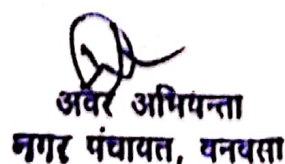 अवर अभियन्ता
नगर पंचायत, बनबसा